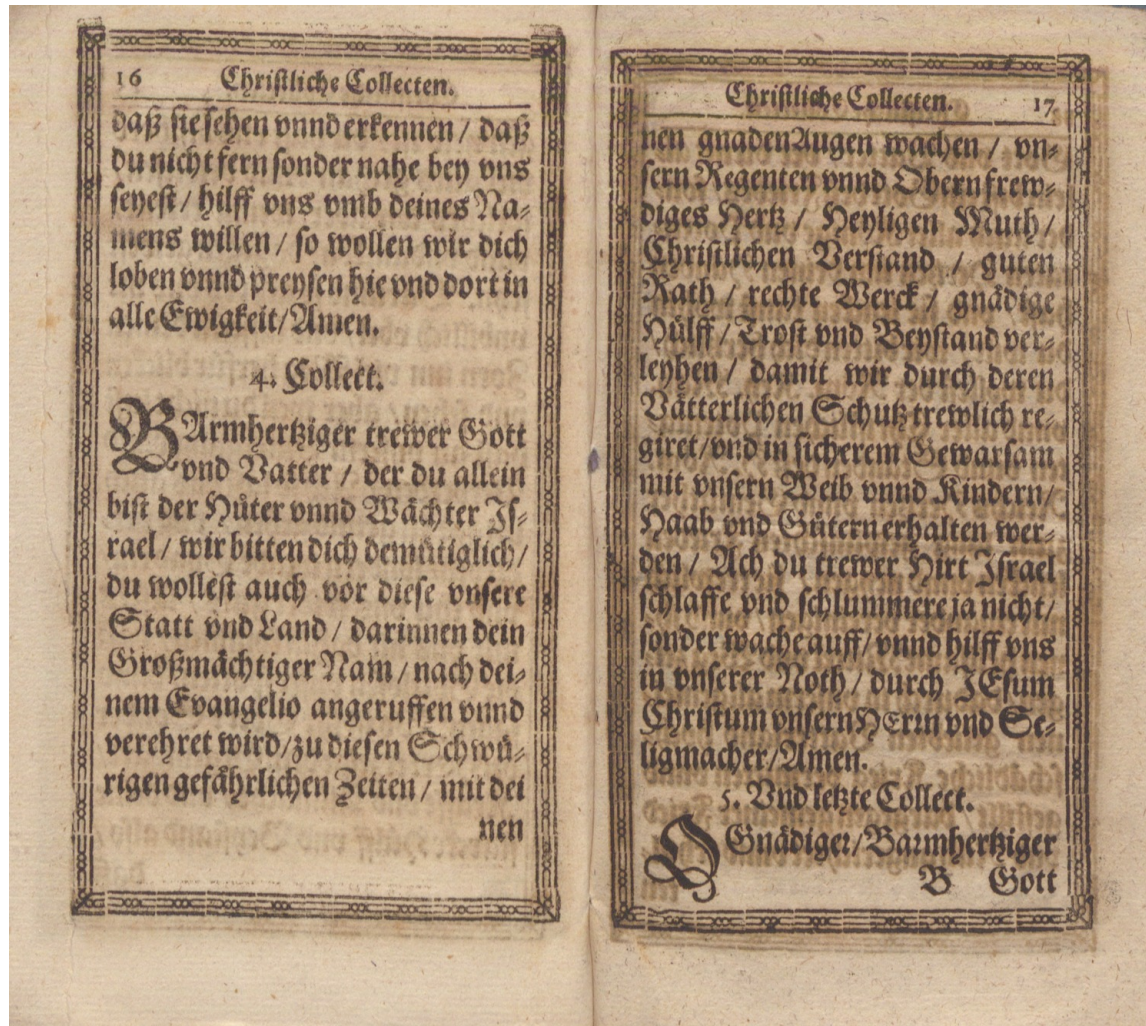 16 Christliche Collecten.
daß sie sehen vnnd erkennen / daß
du nicht fern sonder nahe bey vns
seyest / hilff vns vmb deines Na-
mens willen / so wollen wir dich
loben vnnd preysen hie vnd dort in
alle Ewigkeit/Amen.
4. Collect.
BArmhertziger trewer Gott
vnd Vatter / der du allein
bist der Hüter vnnd Wächter Js-
rael / wir bitten dich demütiglich /
du wollest auch vor diese vnsere
Statt vnd Land / darinnen dein
Großmächtiger Nam / nach dei-
nem Evangelio angeruffen vnnd
verehret wird/zu diesen Schwü-
rigen gefährlichen Zeiten / mit dei
nen
Christliche Collecten. 17
nen gnaden Augen wachen / vn-
sern Regenten vnnd Obern frew-
diges Hertz / Heyligen Muth /
Christlichen Verstand / guten
Rath / rechte Werck / gnädige
Hülff / Trost vnd Beystand ver-
leyhen / damit wir durch deren
Vätterlichen Schutz trewlich re-
giret/vnd in sicherem Gewarsam
mit vnsern Weib vnnd Kindern/
Haab vnd Gütern erhalten wer-
den / Ach du trewer Hirt Jsrael
schlaffe vnd schlummere ja nicht/
sonder wache auff/ vnnd hilff vns
in vnserer Noth / durch JEsum
Christum vnsern HErrn vnd Se-
ligmacher/Amen.
5. Vnd letzte Collect.
O Gnädiger/Barmhertziger
B Gott